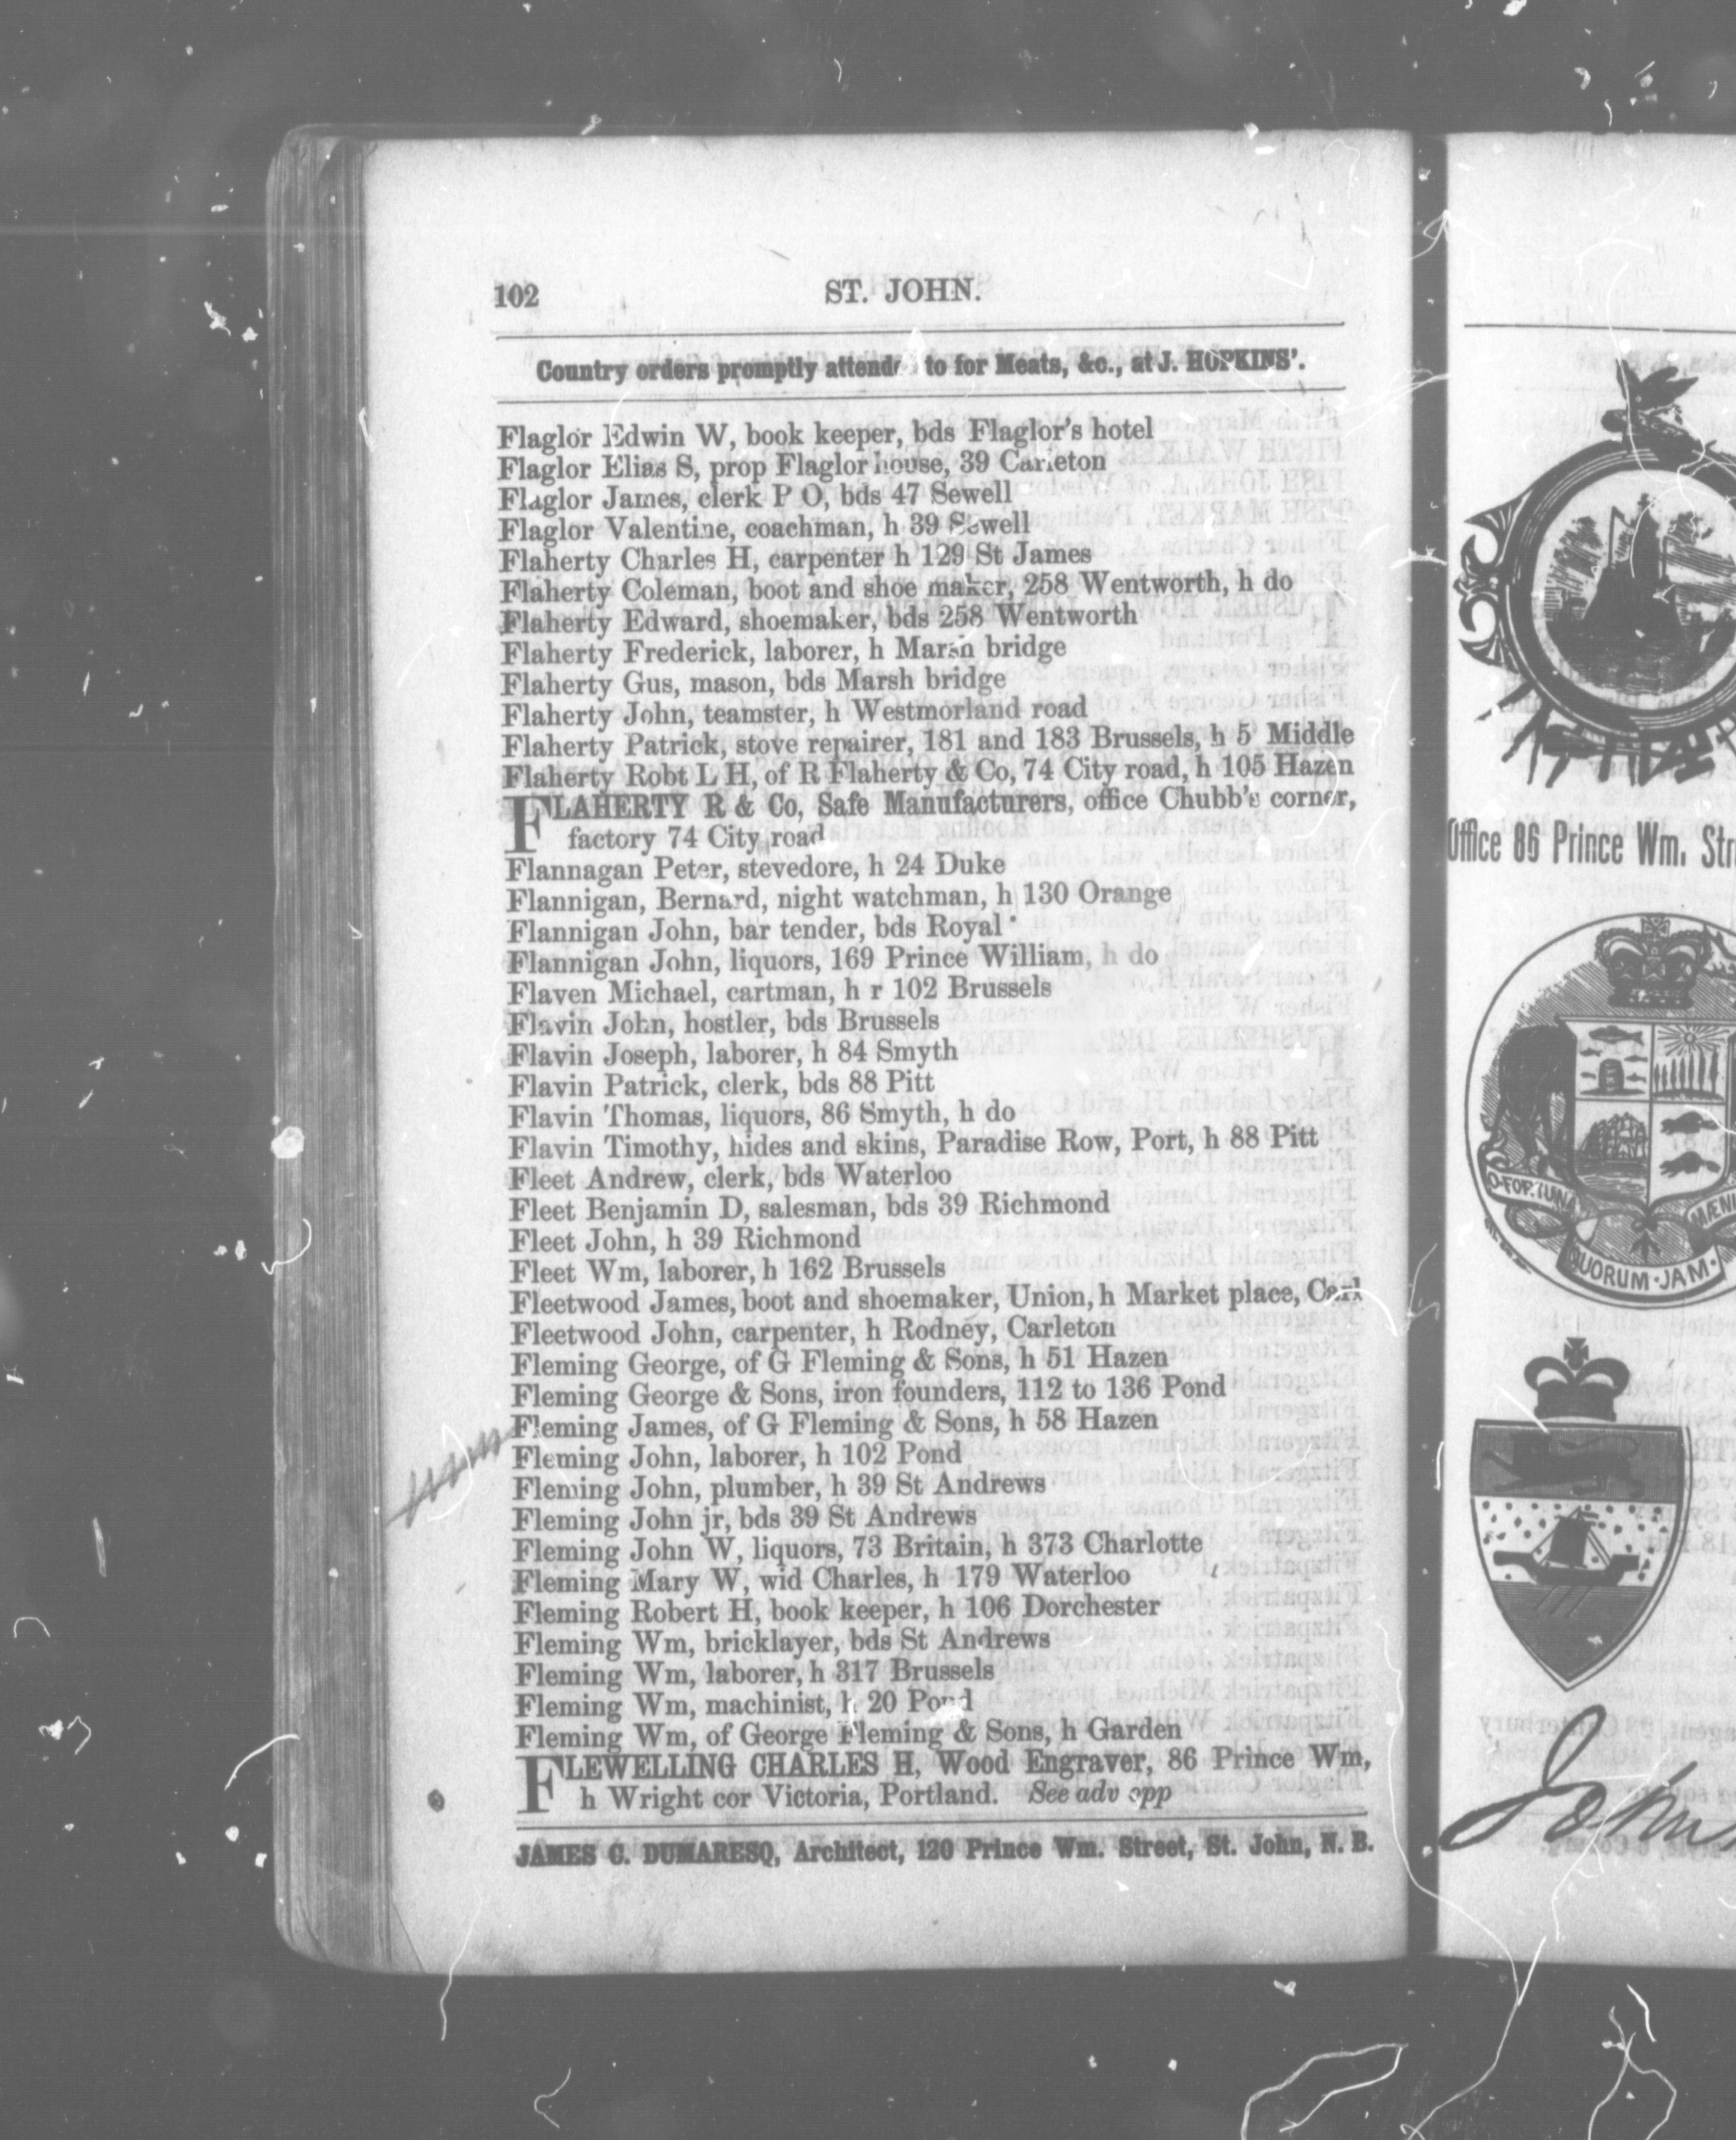 102
ST. JOHN.
Country orders promptly attended to for Meats, &c., at J. HOPKINS'.
Flaglor Edwin W, book keeper, bds Flaglor's hotel
Flaglor Elias S, prop Flaglor house, 39 Carleton
Flaglor James, clerk P O, bds 47 Sewell
Flaglor Valentine, coachman, h 39 Sewell
Flaherty Charles H, carpenter h 129 St James
Flaherty Coleman, boot and shoe maker, 258 Wentworth, h do
Flaherty Edward, shoemaker, bds 258 Wentworth
Flaherty Frederick, laborer, h Marsh bridge
Flaherty Gus, mason, bds Marsh bridge
Flaherty John, teamster, h Westmorland road
Flaherty Patrick, stove repairer, 181 and 183 Brussels, h 5 Middle
Flaherty Robt L H, of R Flaherty & Co, 74 City road, h 105 Hazen
FLAHERTY R & Co, Safe Manufacturers, office Chubb's corner,
factory 74 City road
Flannagan Peter, stevedore, h 24 Duke
Flannigan, Bernard, night watchman, h 130 Orange
Flannigan John, bar tender, bds Royal
Flannigan John, liquors, 169 Prince William, h do
Flaven Michael, cartman, h r 102 Brussels
Flavin John, hostler, bds Brussels
Flavin Joseph, laborer, h 84 Smyth
Flavin Patrick, clerk, bds 88 Pitt
Flavin Thomas, liquors, 86 Smyth, h do
Flavin Timothy, hides and skins, Paradise Row, Port, h 88 Pitt
Fleet Andrew, clerk, bds Waterloo
Fleet Benjamin D, salesman, bds 39 Richmond
Fleet John, h 39 Richmond
Fleet Wm, laborer, h 162 Brussels
Fleetwood James, boot and shoemaker, Union, h Market place, Carl
Fleetwood John, carpenter, h Rodney, Carleton
Fleming George, of G Fleming & Sons, h 51 Hazen
Fleming George & Sons, iron founders, 112 to 136 Pond
Fleming James, of G Fleming & Sons, h 58 Hazen
Fleming John, laborer, h 102 Pond
Fleming John, plumber, h 39 St Andrews
Fleming John jr, bds 39 St Andrews
Fleming John W, liquors, 73 Britain, h 373 Charlotte
Fleming Mary W, wid Charles, h 179 Waterloo
Fleming Robert H, book keeper, h 106 Dorchester
Fleming Wm, bricklayer, bds St Andrews
Fleming Wm, laborer, h 317 Brussels
Fleming Wm, machinist, h 20 Pond
Fleming Wm, of George Fleming & Sons, h Garden
FLEWELLING CHARLES H, Wood Engraver, 86 Prince Wm,
h Wright cor Victoria, Portland. See adv opp
JAMES C. DUMARESQ, Architect, 120 Prince Wm. Street, St. John, N. B.
Office 86 Prince Wm. Str
O·FORTUNA
QUORUM·JAM·
MÆNI
John